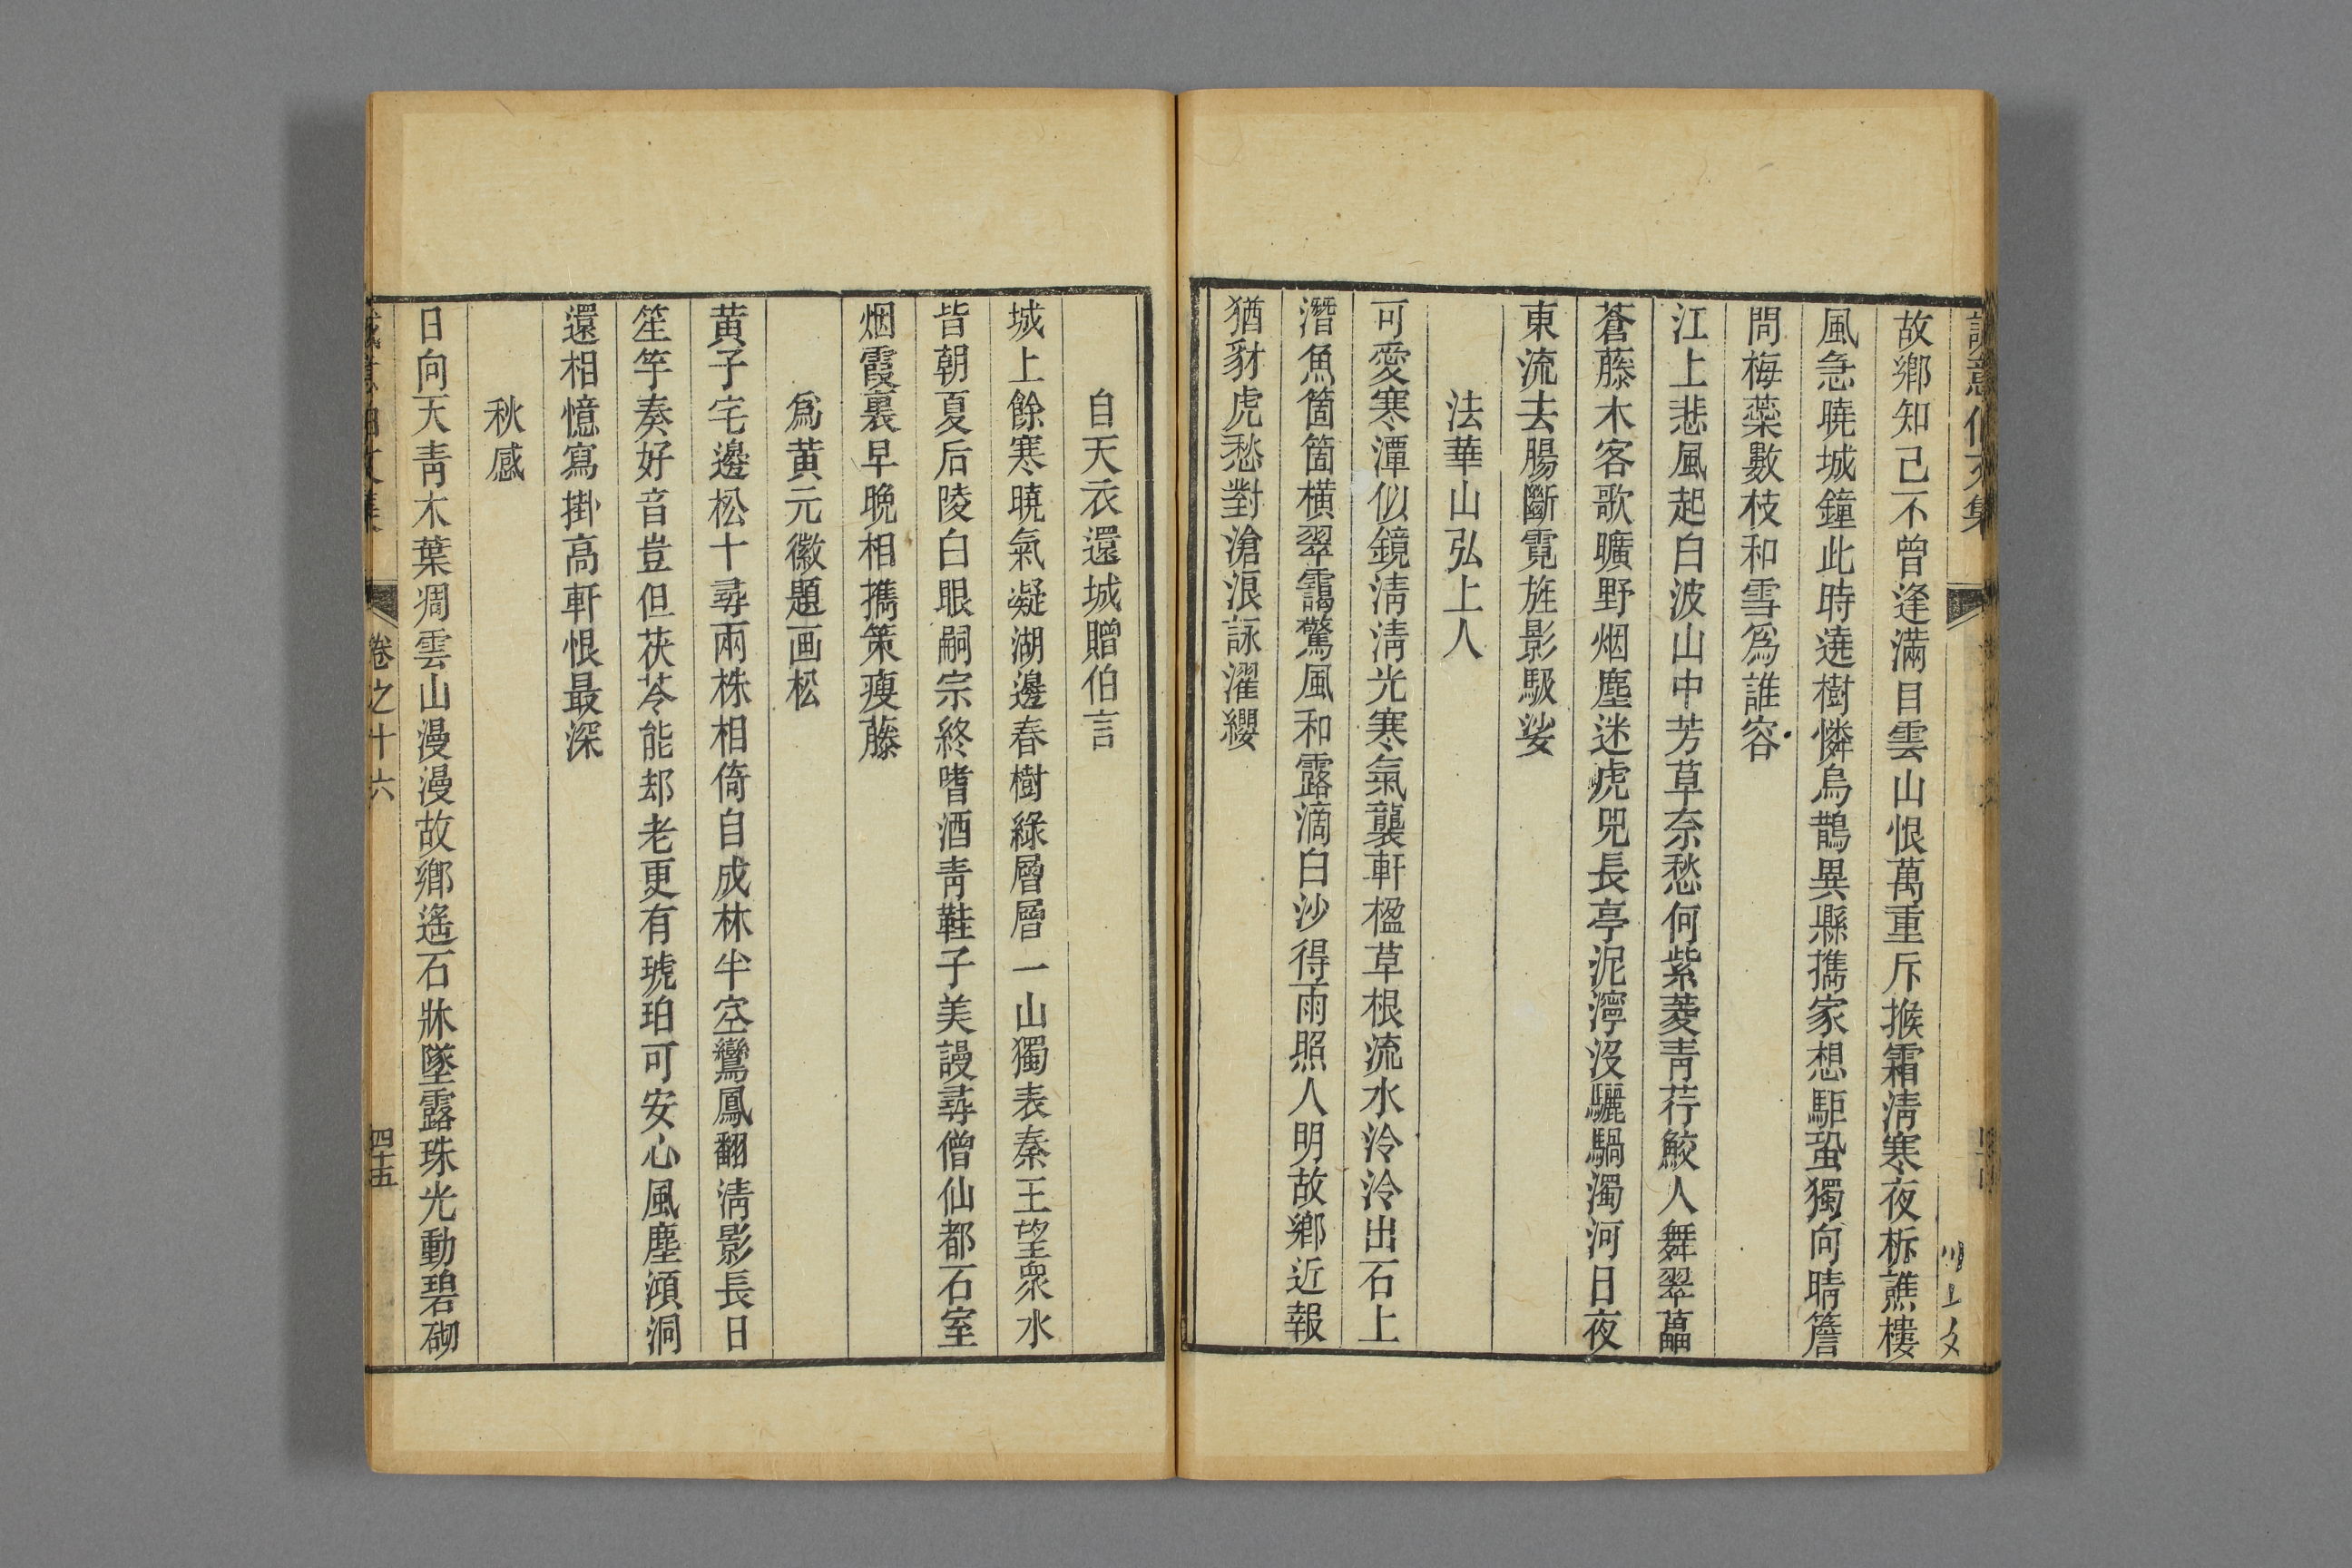 故鄉知己不曾逢滿目雲山恨萬重斥堠霜清寒夜柝譙樓
風急曉城鐘此時遶樹憐烏鵲異縣攜家想駏蛩獨向晴簷
問梅蘂數枝和雪爲誰容
江上悲風起白波山中芳草奈愁何紫菱青荇鮫人舞翠藟
蒼藤木客歌曠野烟塵迷虎兕長亭泥濘沒驪騧濁河日夜
東流去腸斷霓旌影馺娑
法華山弘上人
可愛寒潭似鏡清清光寒氣襲軒楹草根流水泠泠出石上
潛魚箇箇橫翠靄驚風和露滴白沙得雨照人明故鄉近報
猶豺虎愁對滄浪詠濯纓
自天衣還城贈伯言
城上餘寒曉氣凝湖邊春樹綠層層一山獨表秦王望衆水
皆朝夏后陵白眼嗣宗終嗜酒青鞋子美謾尋僧仙都石室
烟霞裏早晚相攜策瘦藤
爲黃元徽題画松
黃子宅邊松十尋兩株相倚自成林半空鸞鳳翻清影長日
笙竽奏好音豈但茯苓能却老更有琥珀可安心風塵澒洞
還相憶寫掛高軒恨最深
秋感
日向天青木葉凋雲山漫漫故鄉遙石牀墜露珠光動碧砌
卷之十六
四十五